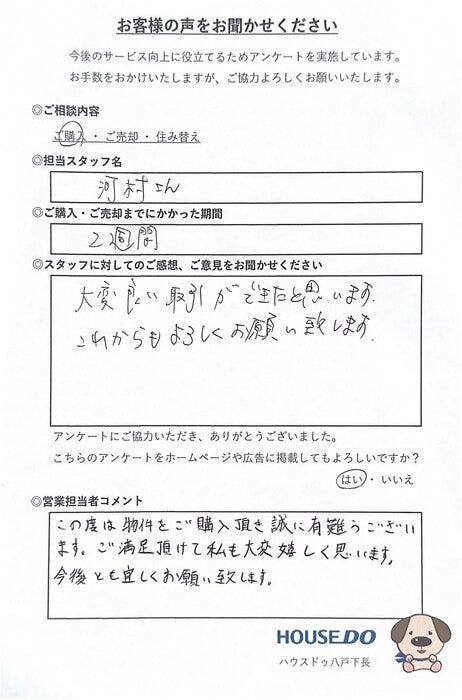 お客様の声をお聞かせください
今後のサービス向上に役立てるためアンケートを実施しています。
お手数をおかけいたしますが、ご協力よろしくお願いいたします。
◎ご相談内容
ご購入・ご売却・住み替え
◎担当スタッフ名
河村さん
◎ご購入・ご売却までにかかった期間
2週間
◎スタッフに対してのご感想、ご意見をお聞かせください
大変良い取引ができたと思います.
これからもよろしくお願い致します.
アンケートにご協力いただき、ありがとうございました。
こちらのアンケートをホームページや広告に掲載してもよろしいですか？
はい・いいえ
◎営業担当者コメント
この度は物件をご購入頂き誠に有難うござい
ます。ご満足頂けて私も大変嬉しく思います。
今後とも宜しくお願い致します。
HOUSEDO
ハウスドゥ八戸下長